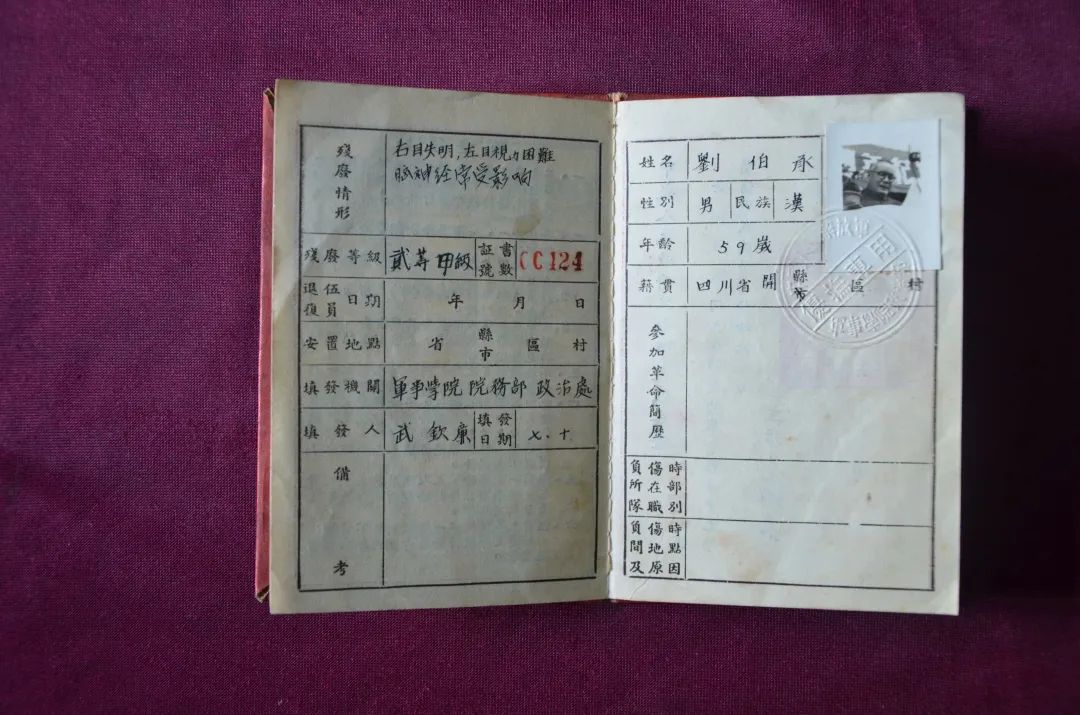 殘廢情形
右目失明，左目視力困難
腦神経常受影响
殘廢等級 貳等甲級 証書號數 CC124
退伍復員日期 年 月 日
安置地點 省 縣市 區 村
填發機關 軍事學院院務部政治處
填發人 武欽廉 填發日期 七．十．
備考
姓名 劉伯承
性別 男 民族 漢
年齡 59歲
籍貫 四川省開縣市 區 村
參加革命簡歷
負傷時所在部隊職別
負傷時間地點及原因